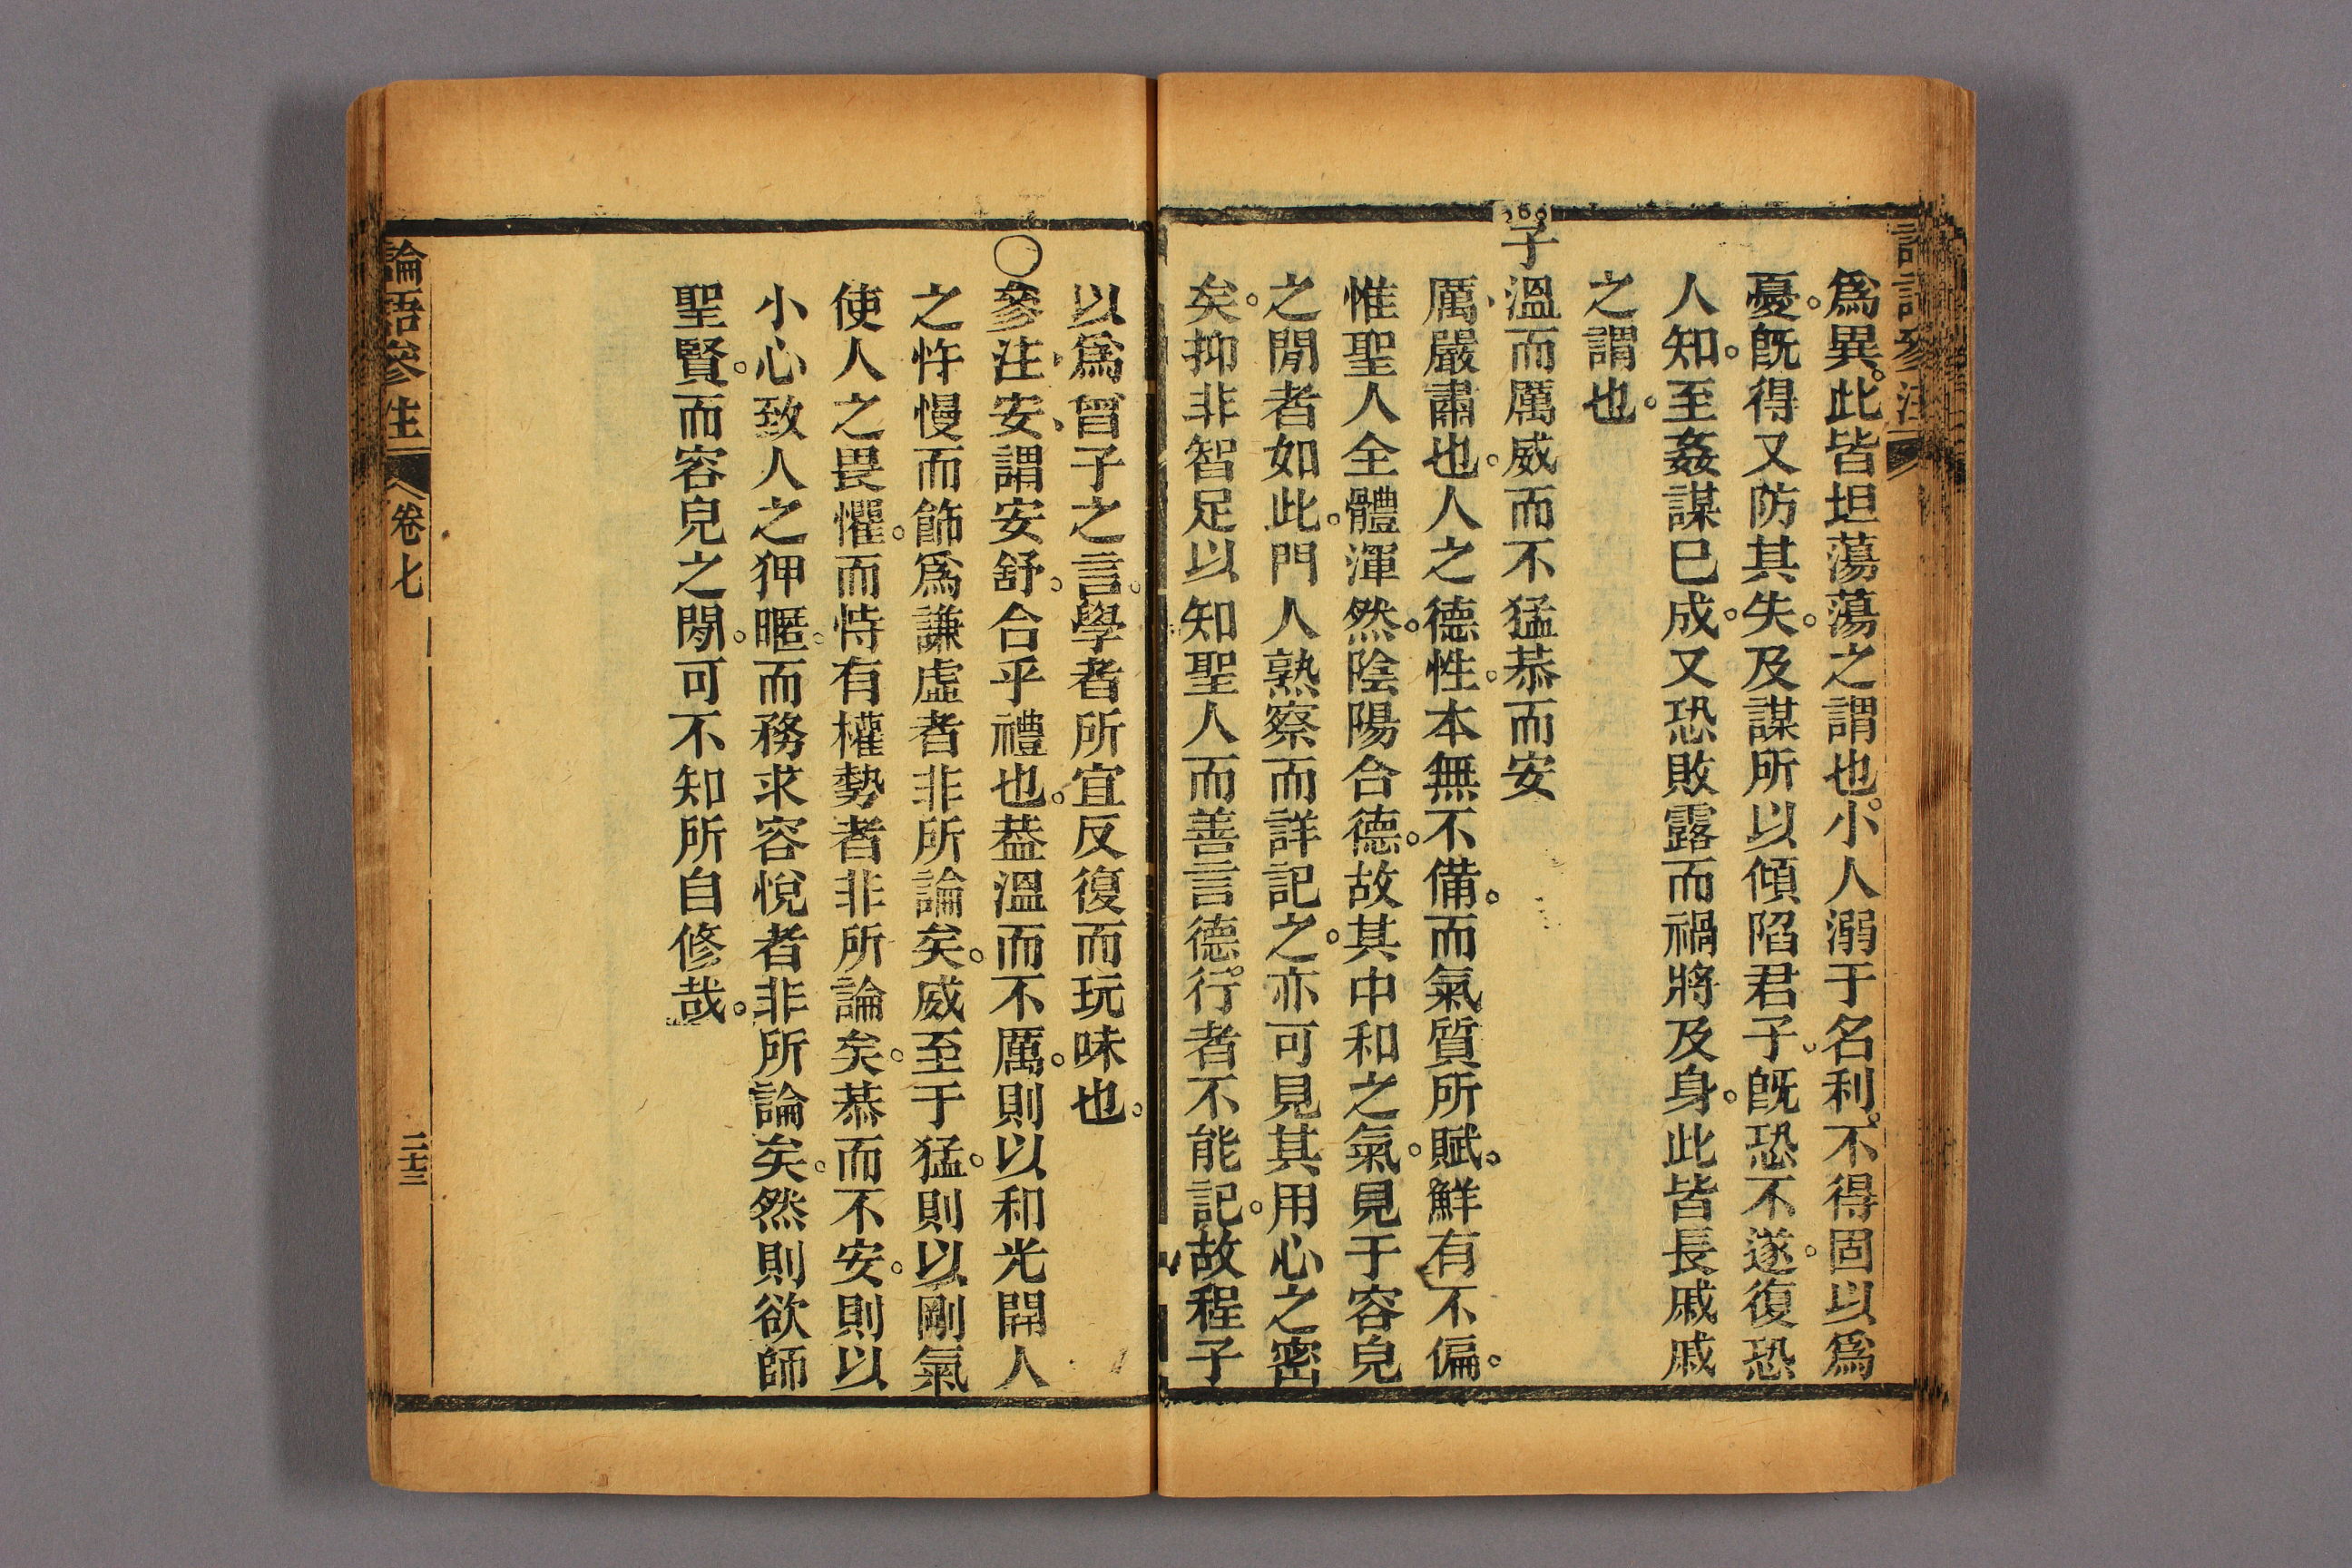 爲異。此皆坦蕩蕩之謂也。小人溺于名利。不得固以爲
憂。旣得又防其失。及謀所以傾陷君子。旣恐不遂。復恐
人知。至姦謀已成。又恐敗露而禍將及身。此皆長戚戚
之謂也。
子溫而厲威而不猛恭而安
厲、嚴肅也。人之德性。本無不備。而氣質所賦。鮮有不偏。
惟聖人全體渾然。陰陽合德。故其中和之氣。見于容皃
之閒者如此。門人熟察而詳記之。亦可見其用心之密
矣。抑非智足以知聖人而善言德行者不能記。故程子
以爲曾子之言。學者所宜反復而玩味也。
○參注、安、謂安舒。合乎禮也。葢溫而不厲。則以和光開人
之忤慢而飾爲謙虛者非所論矣。威至于猛。則以剛氣
使人之畏懼。而恃有權勢者非所論矣。恭而不安。則以
小心致人之狎暱。而務求容悅者非所論矣。然則欲師
聖賢。而容皃之閒。可不知所自修哉。
論語參注
卷七
二十三